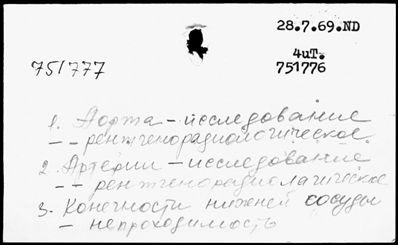 28.7.69.ND
751777
4uT.
751776
1. Аорта – исследование
– – рентгенорадиологическое.
2. Артерии – исследование
– – рентгенорадиологическое
3. Конечности нижней сосуды
– непроходимость